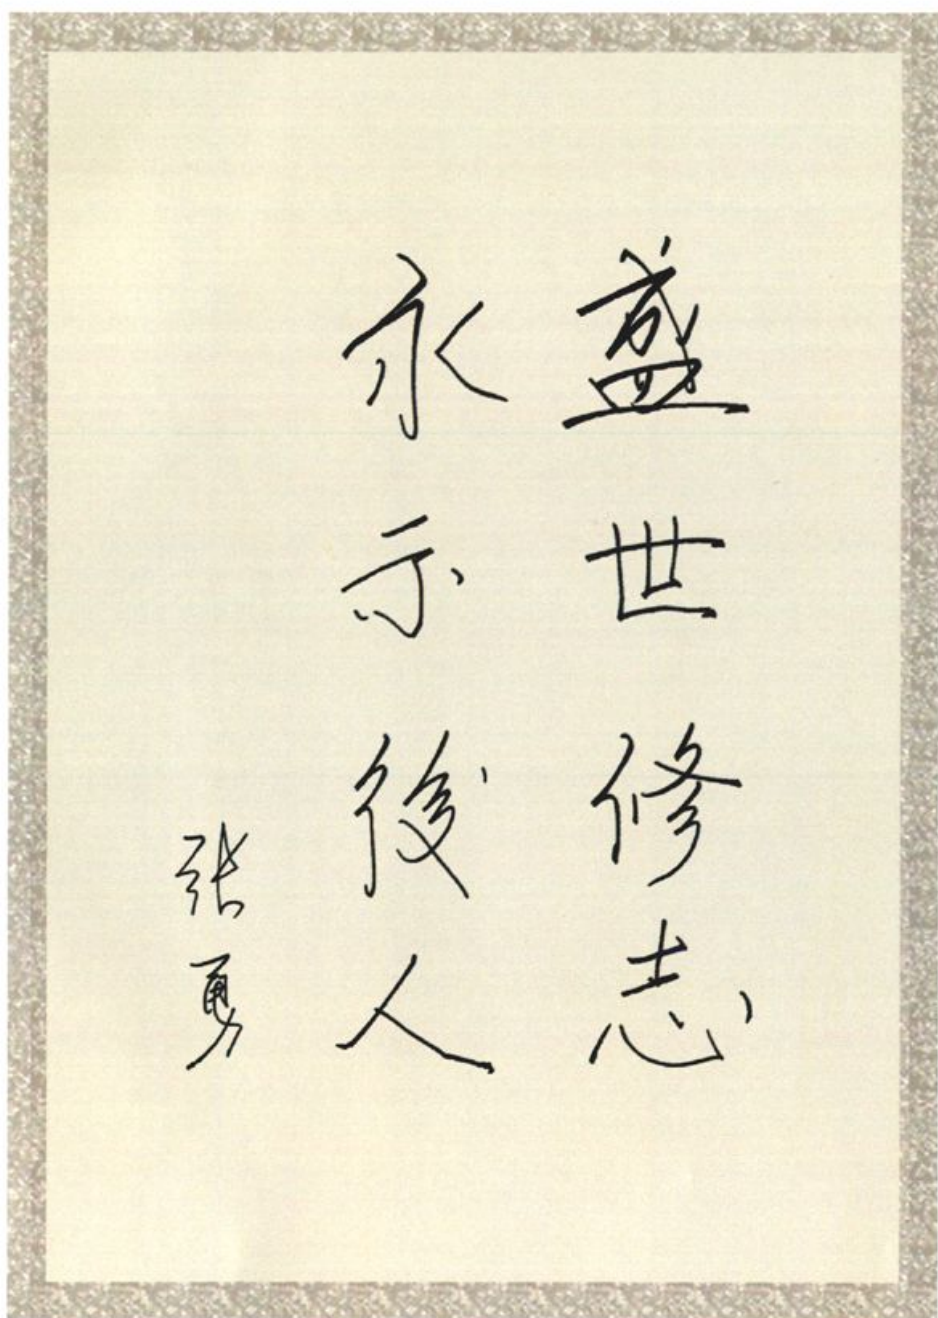 盛世修志
永示後人
张勇